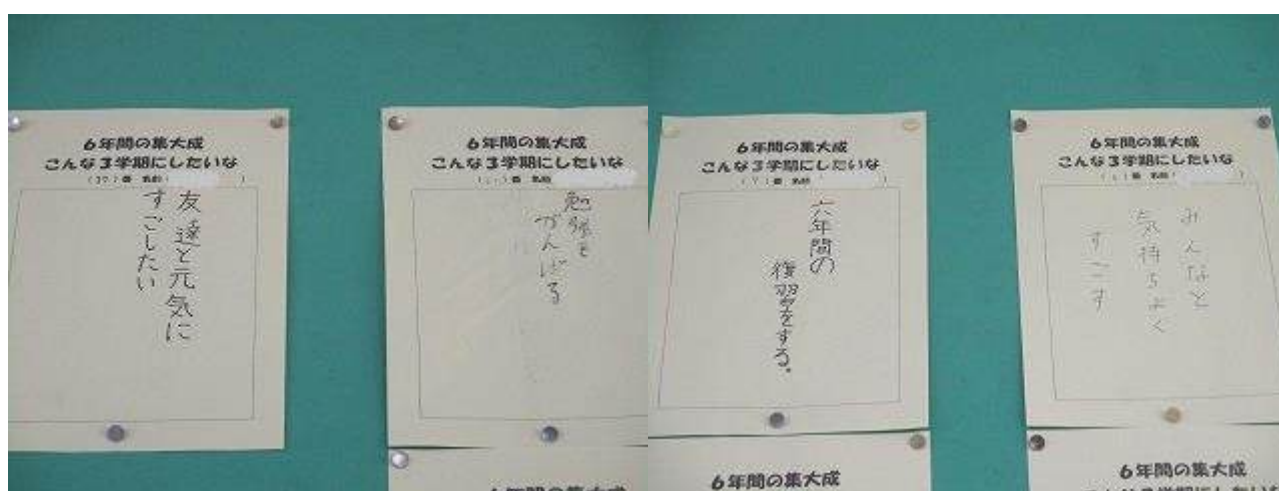 6年間の集大成
こんな3学期にしたいな
友達と元気に
すごしたい
6年間の集大成
こんな3学期にしたいな
勉強を
がんばる
6年間の集大成
こんな3学期にしたいな
六年間の
復習をする。
6年間の集大成
こんな3学期にしたいな
みんなと
気持ちよく
すごす
6年間の集大成
6年間の集大成
6年間の集大成